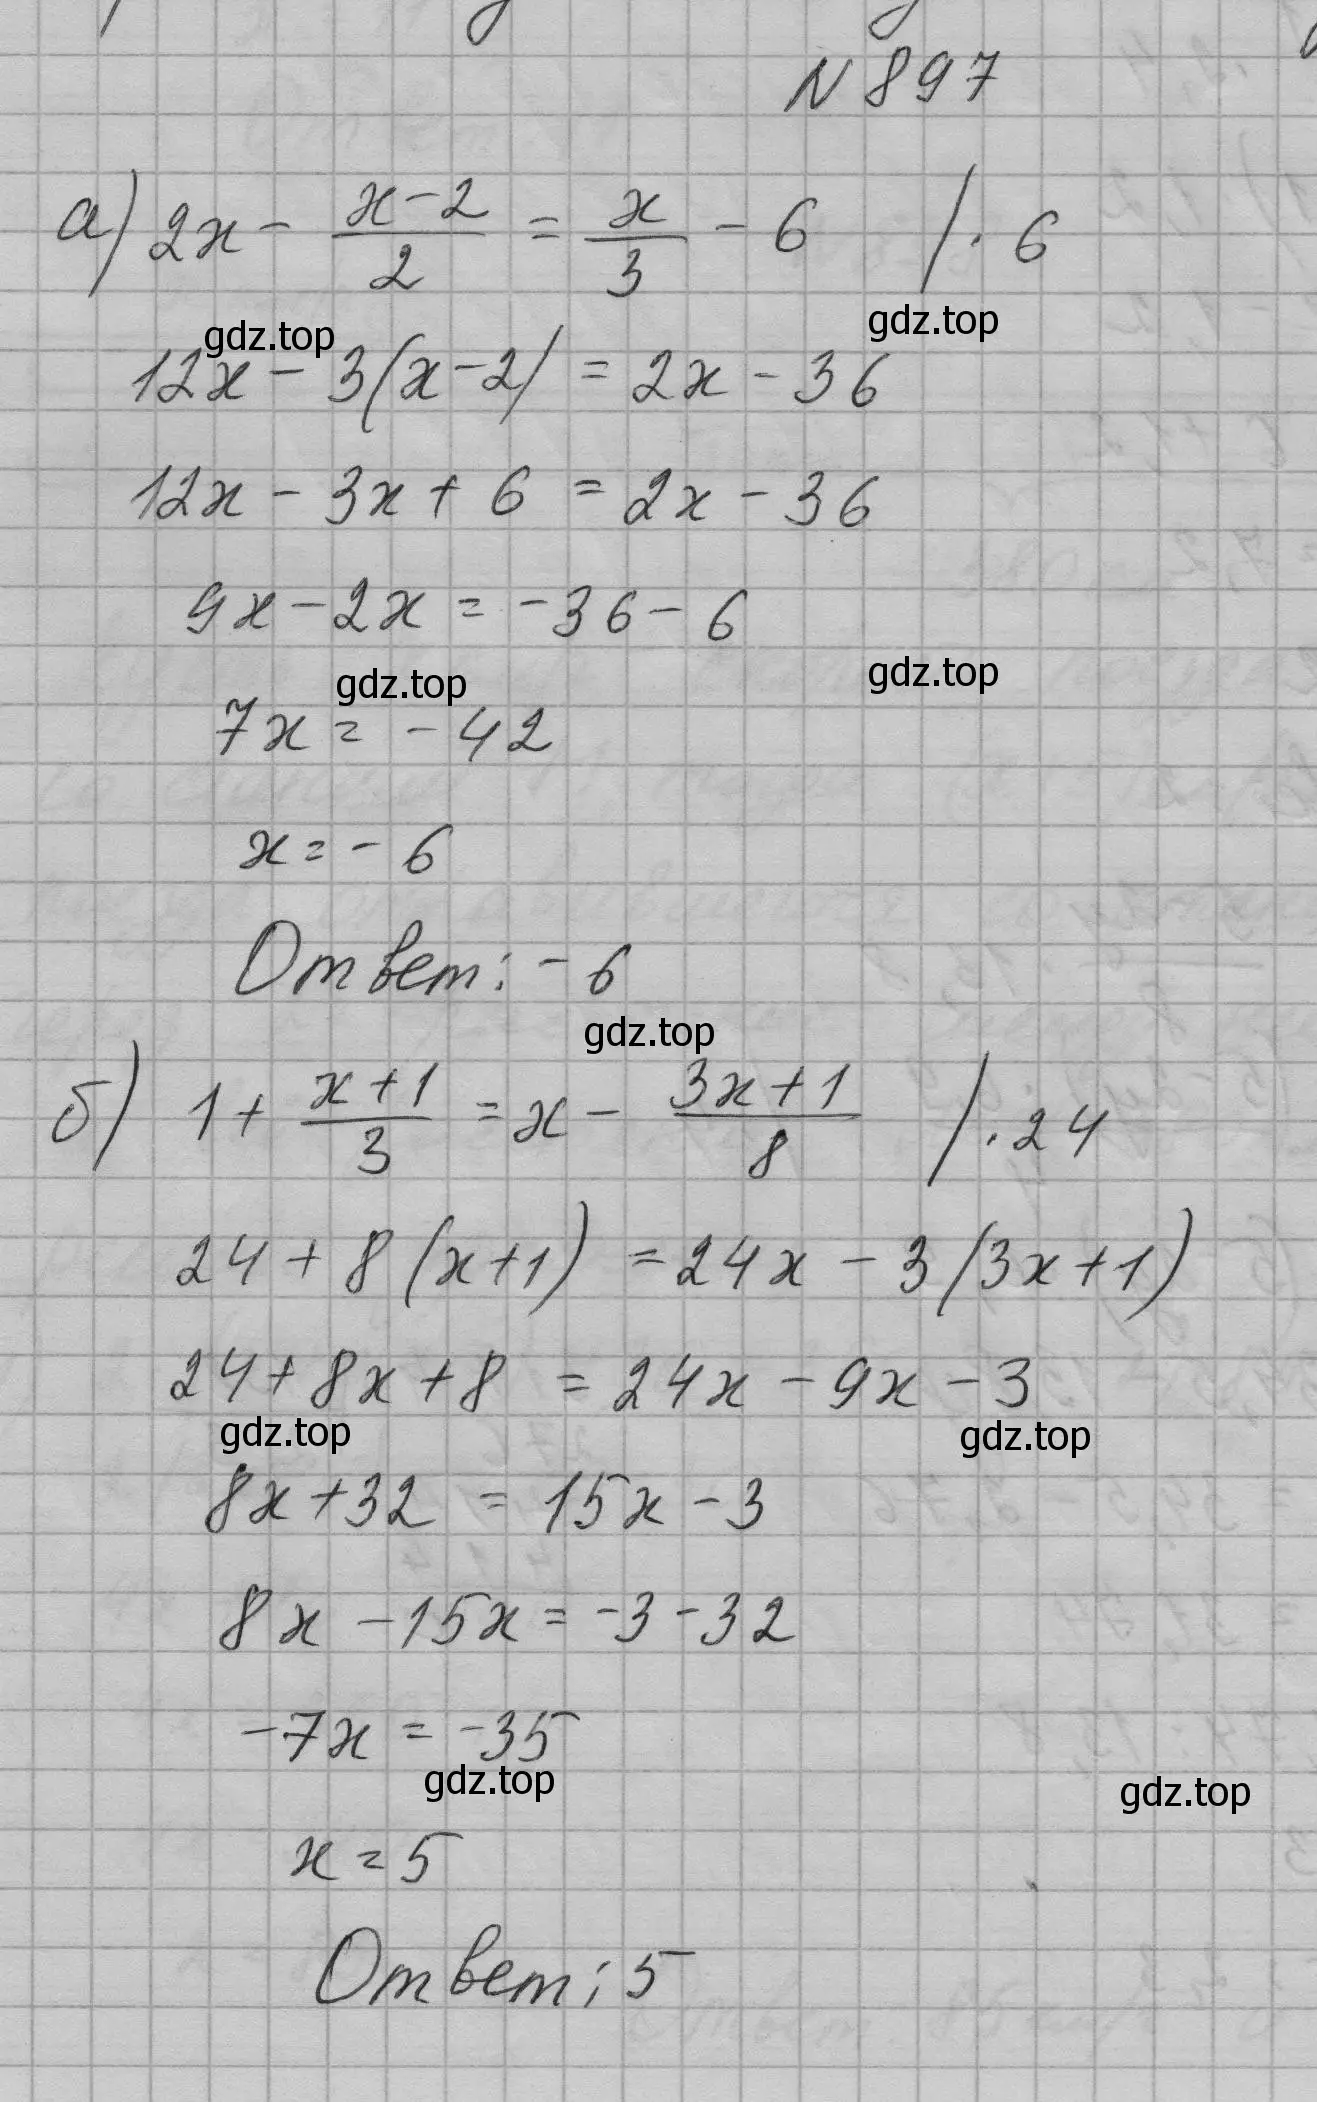 N 897
а) 2x - (x-2)/2 = x/3 - 6 / · 6
gdz.top gdz.top
12x - 3(x-2) = 2x - 36
12x - 3x + 6 = 2x - 36
9x - 2x = -36 - 6
gdz.top gdz.top
7x = -42
x = -6
Ответ: -6
gdz.top
б) 1 + (x+1)/3 = x - (3x+1)/8 / · 24
24 + 8(x+1) = 24x - 3(3x+1)
24 + 8x + 8 = 24x - 9x - 3
gdz.top gdz.top
8x + 32 = 15x - 3
8x - 15x = -3 - 32
-7x = -35
gdz.top gdz.top
x = 5
Ответ: 5